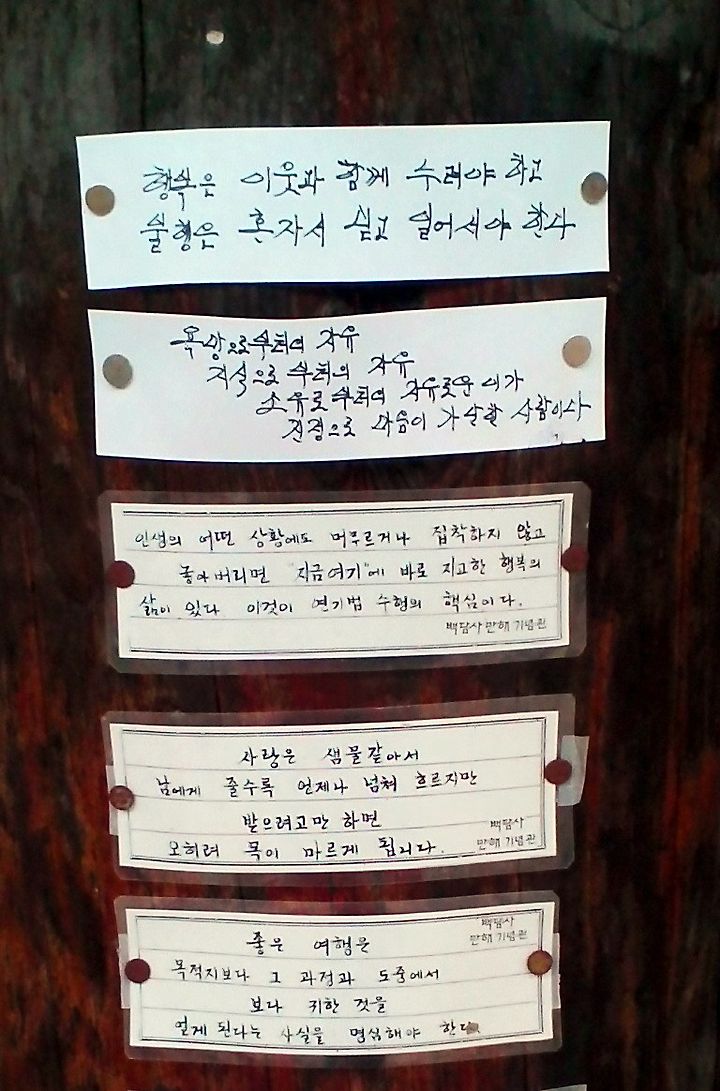 행복은 이웃과 함께 수려야 하고
불행은 혼자서 싣고 일어서야 한다
욕망으로부터의 자유
지식으로부터의 자유
소유로부터의 자유로운 이가
진정으로 마음이 가난한 사람이다
인생의 어떤 상황에도 머무르거나 집착하지 않고
놓아버리면 "지금여기"에 바로 지고한 행복의
삶이 있다 이것이 연기법 수행의 핵심이다.
백담사 만해 기념관
사랑은 샘물같아서
남에게 줄수록 언제나 넘쳐 흐르지만
받으려고만 하면
오히려 목이 마르게 됩니다.
백담사
만해 기념관
백담사
만해 기념관
좋은 여행은
목적지보다 그 과정과 도중에서
보다 귀한 것을
얻게 된다는 사실을 명심해야 한다